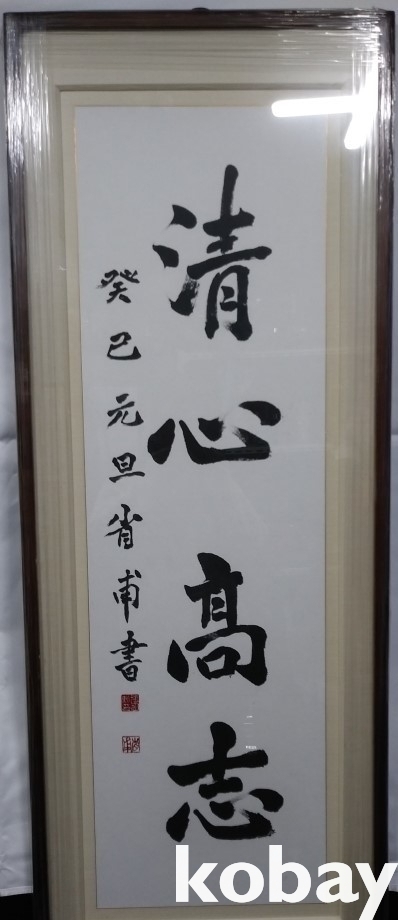 清心髙志
癸巳元旦省甫書
kobay